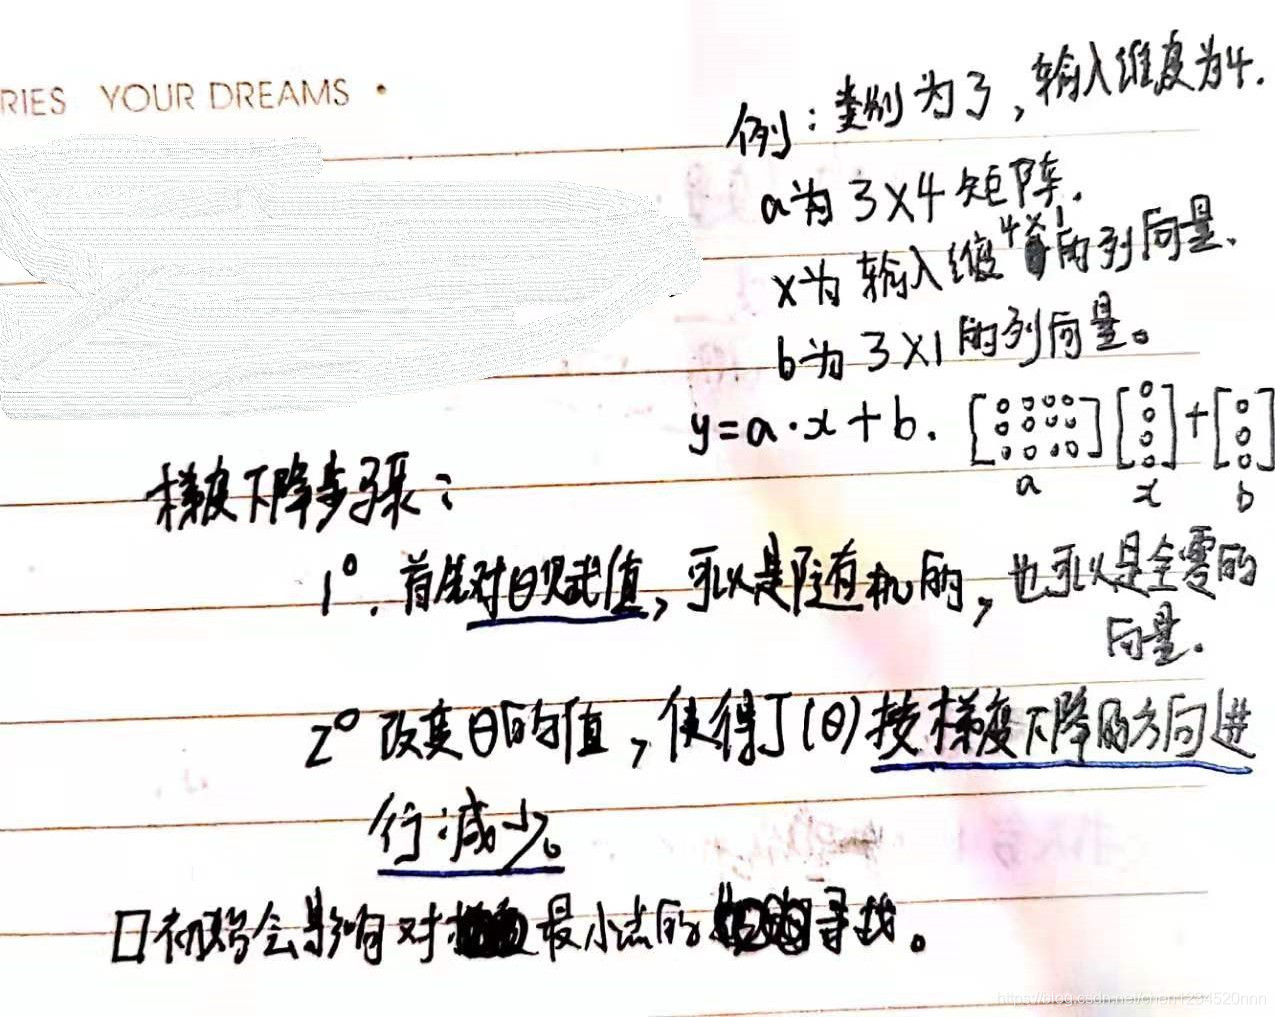 RIES YOUR DREAMS •
例：类别为3，输入维度为4.
a为 3×4 矩阵.
x为 输入维度 4×1 的列向量.
b为 3×1 的列向量。
y=a·x+b.
a x b
梯度下降步骤：
1°. 首先对θ赋值，可以是随机的，也可以是全零的
向量.
2° 改变θ的值，使得J(θ)按梯度下降的方向进
行减少。
口初始会影响对最小点的寻找。
https://blog.csdn.net/chen1234520nnn